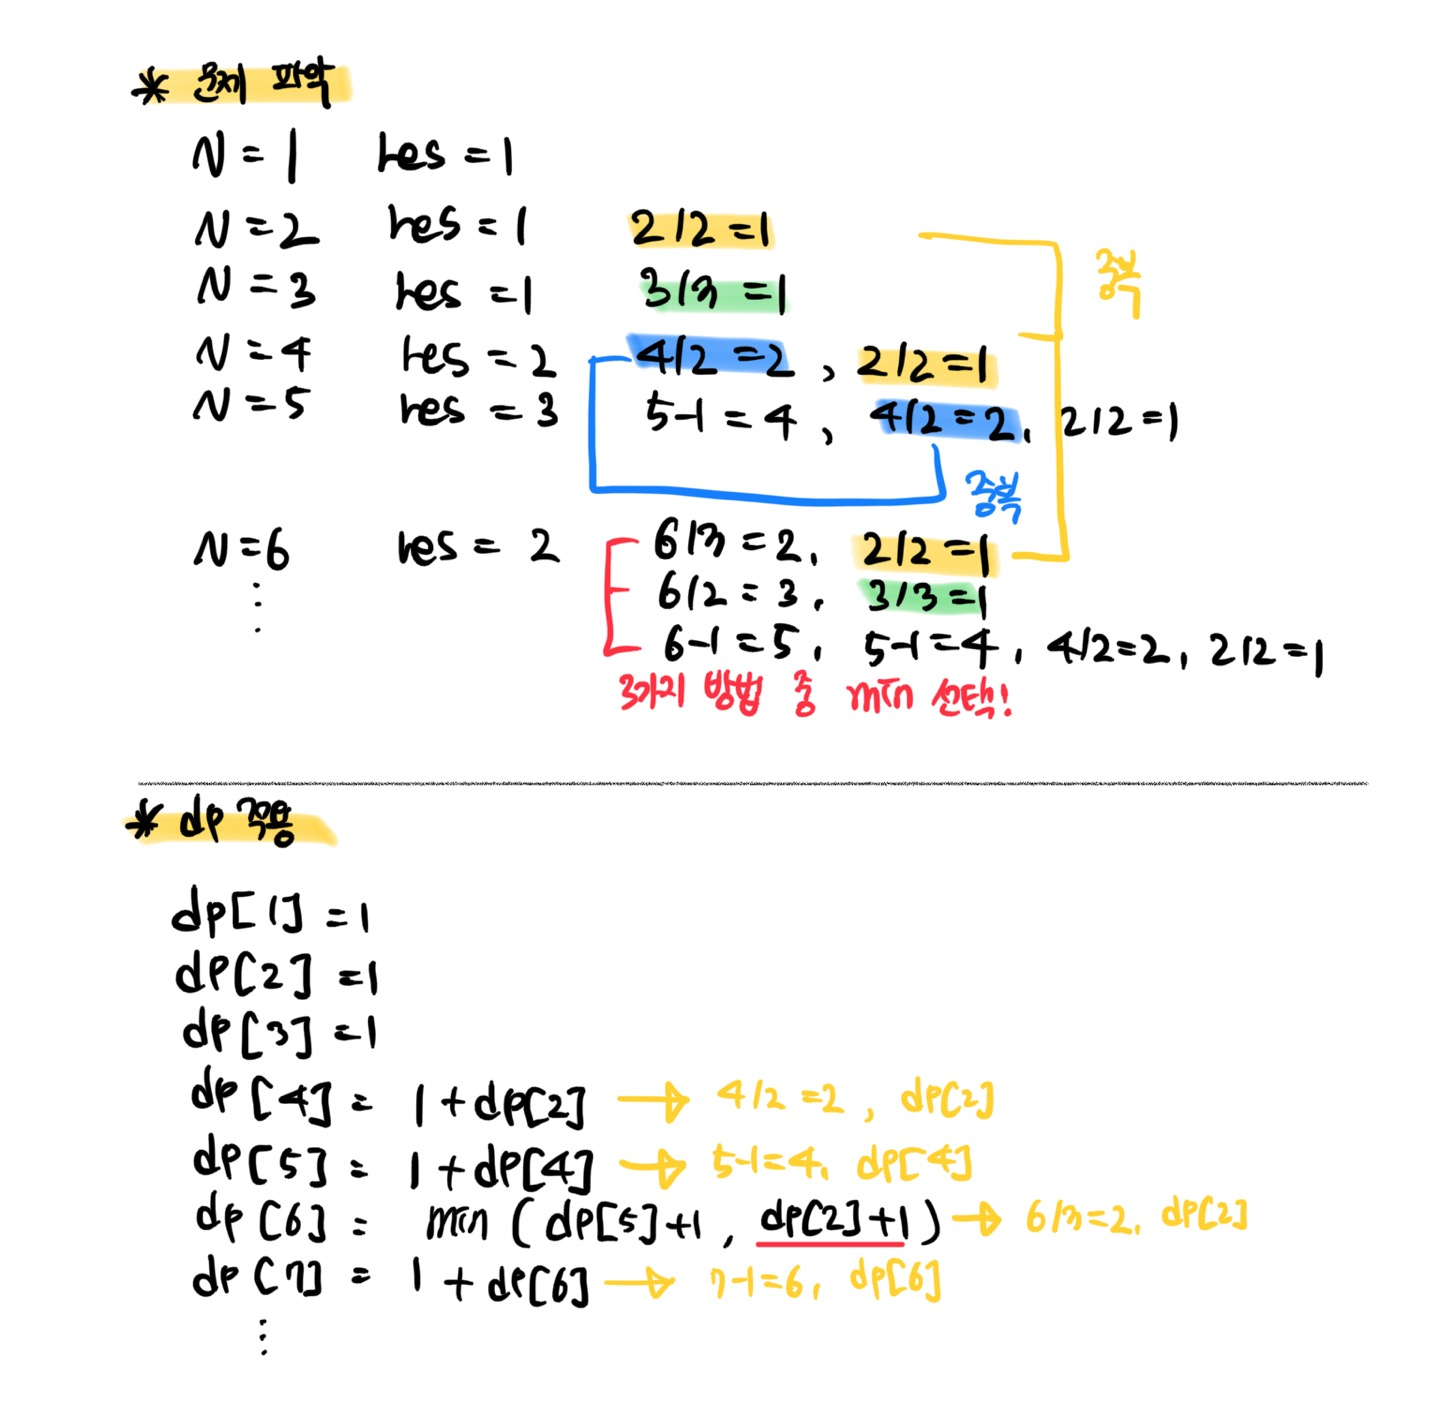 * 문제 파악
N = 1 res = 1
N = 2 res = 1 2/2 = 1
중복
N = 3 res = 1 3/3 = 1
N = 4 res = 2 4/2 = 2 , 2/2 = 1
N = 5 res = 3 5-1 = 4 , 4/2 = 2, 2/2 = 1
중복
N = 6 res = 2 6/3 = 2, 2/2 = 1
6/2 = 3, 3/3 = 1
6-1 = 5, 5-1 = 4, 4/2 = 2, 2/2 = 1
3가지 방법 중 min 선택!
* dp 적용
dp[1] = 1
dp[2] = 1
dp[3] = 1
dp[4] = 1 + dp[2] → 4/2 = 2 , dp[2]
dp[5] = 1 + dp[4] → 5-1 = 4, dp[4]
dp[6] = min ( dp[5]+1 , dp[2]+1 ) → 6/3 = 2, dp[2]
dp[7] = 1 + dp[6] → 7-1 = 6, dp[6]